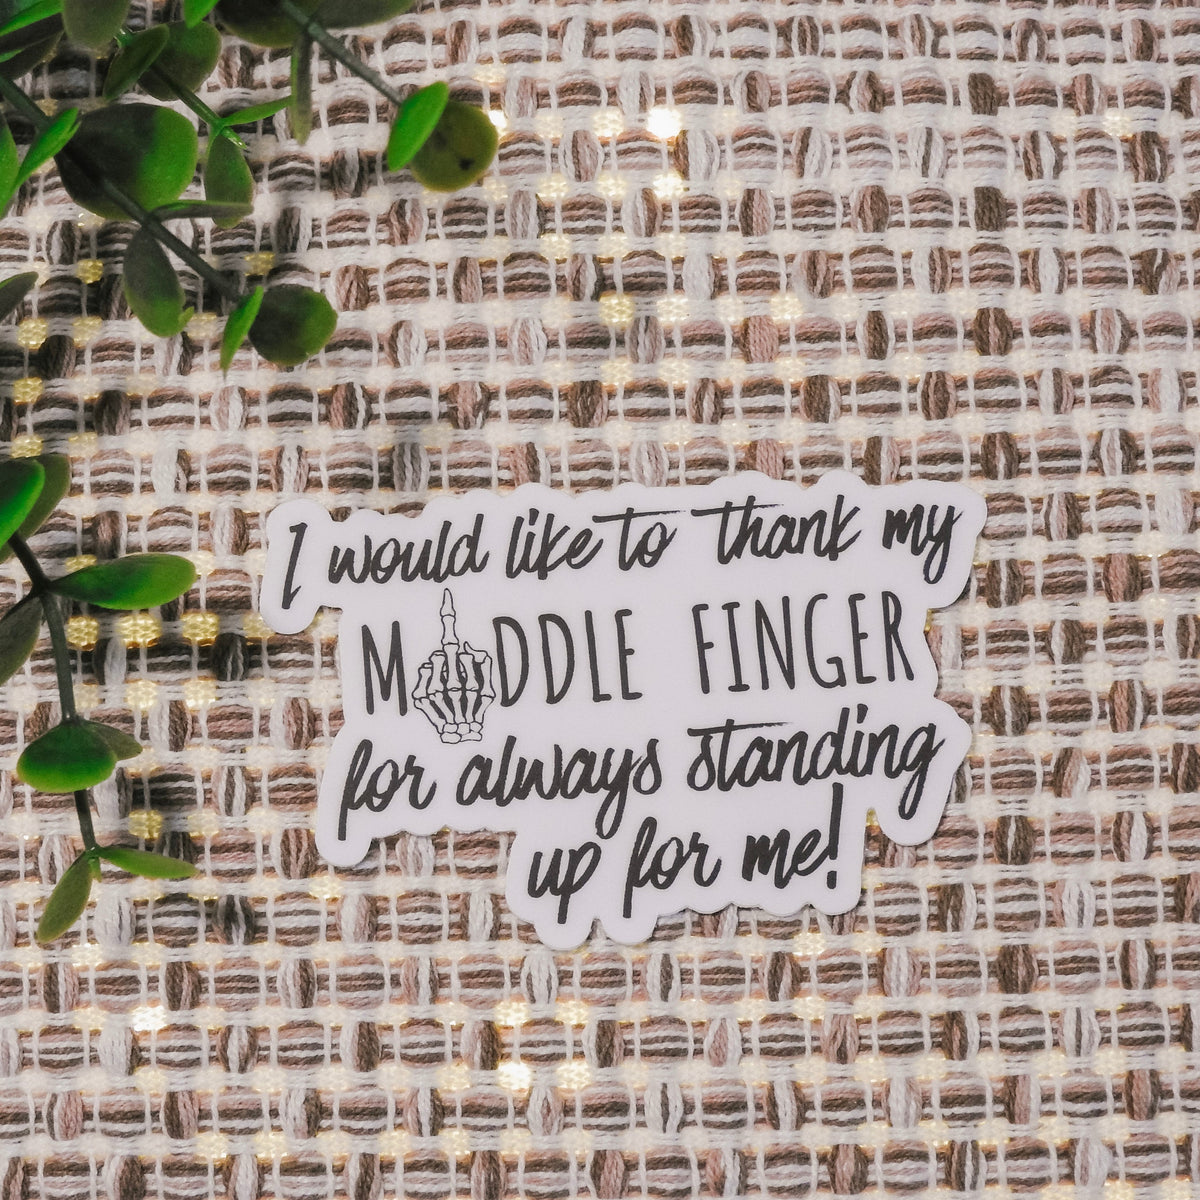 I would like to thank my
MIDDLE FINGER
for always standing
up for me!